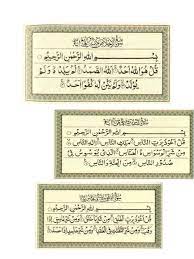 بِسْمِ اللهِ الرَّحْمٰنِ الرَّحِيْمِ
قُلْ هُوَ اللهُ أَحَدٌ اللهُ الصَّمَدُ لَمْ يَلِدْ وَلَمْ
يُولَدْ وَلَمْ يَكُنْ لَهُ كُفُوًا أَحَدٌ
بِسْمِ اللهِ الرَّحْمٰنِ الرَّحِيْمِ
قُلْ أَعُوذُ بِرَبِّ النَّاسِ مَلِكِ النَّاسِ إِلٰهِ النَّاسِ
مِنْ شَرِّ الْوَسْوَاسِ الْخَنَّاسِ الَّذِي يُوَسْوِسُ فِي
صُدُورِ النَّاسِ مِنَ الْجِنَّةِ وَالنَّاسِ
بِسْمِ اللهِ الرَّحْمٰنِ الرَّحِيْمِ
قُلْ أَعُوذُ بِرَبِّ الْفَلَقِ مِنْ شَرِّ مَا خَلَقَ وَمِنْ شَرِّ غَاسِقٍ إِذَا
وَقَبَ وَمِنْ شَرِّ النَّفَّاثَاتِ فِي الْعُقَدِ وَمِنْ شَرِّ حَاسِدٍ إِذَا حَسَدَ